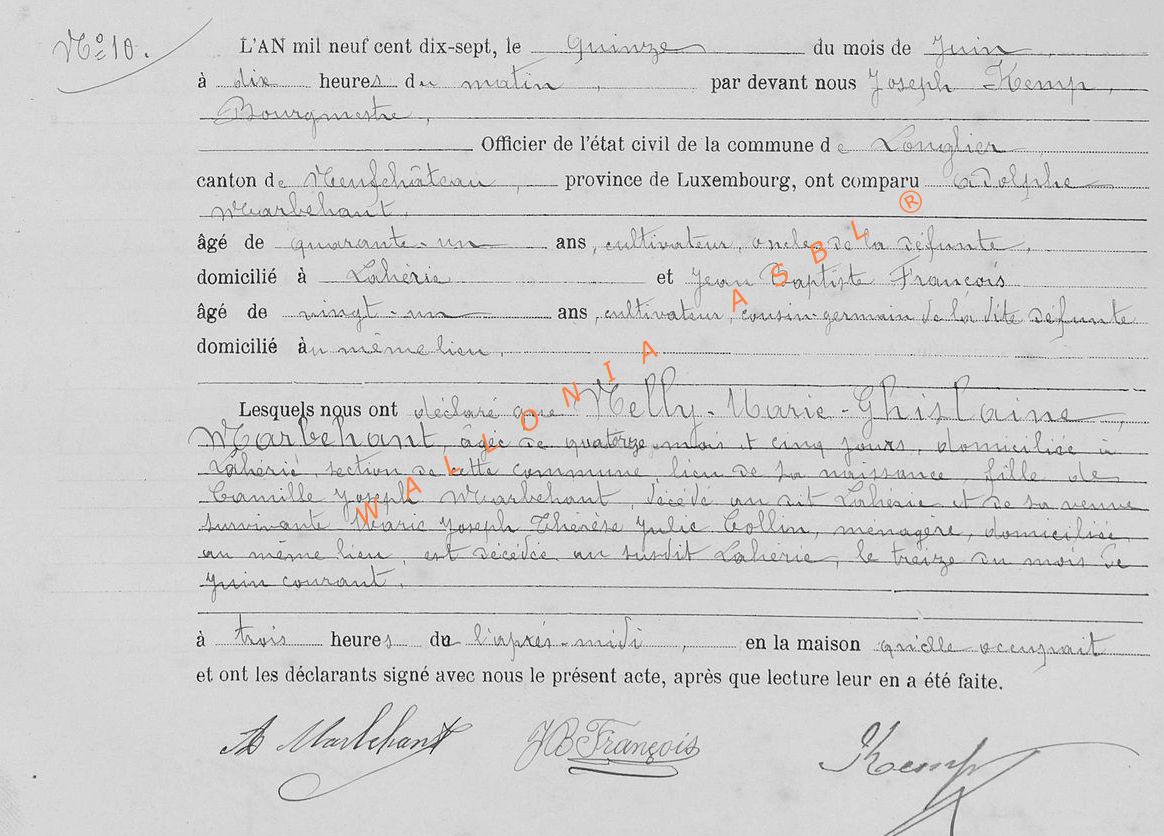 N° 10.
L'AN mil neuf cent dix-sept, le quinze du mois de Juin
à dix heures du matin, par devant nous Joseph Kemp,
Bourgmestre,
Officier de l'état civil de la commune de Longlier
canton de Neufchâteau, province de Luxembourg, ont comparu Adolphe
Marbehant,
âgé de quarante-un ans, cultivateur, oncle de la défunte,
domicilié à Lahérie et Jean Baptiste François
âgé de vingt-un ans, cultivateur, cousin-germain de la dite défunte
domicilié au même lieu,
Lesquels nous ont déclaré que Nelly-Marie-Ghislaine,
Marbehant, âgée de quatorze mois et cinq jours, domiciliée à
Lahérie, section de cette commune, lieu de sa naissance, fille de
Camille Joseph Marbehant, décédé au dit Lahérie et de sa veuve
survivante Marie Joseph Thérèse Julie Collin, ménagère, domiciliée
au même lieu, est décédée au susdit Laherie, le treize du mois de
Juin courant,
à trois heures du l'après-midi, en la maison qu'elle occupait
et ont les déclarants signé avec nous le présent acte, après que lecture leur en a été faite.
A Marbehant JB François JKemp
WALLONIA ASBL ®